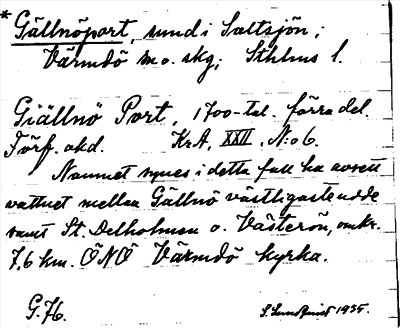 * Gällnöport, sund i Saltsjön;
Värmdö m. o. skg; Sthlms l.
Giällnö Port, 1700-tal. förra del.
Förf. okd. KrA, XXII. N:o 6.
Namnet synes i detta fall ha avsett
vattnet mellan Gällnö västligaste udde
samt St. Delholmen o. Västerön, omkr.
7,6 km. ÖNÖ Värmdö kyrka.
G. 76. S. Sundqvist 1935.